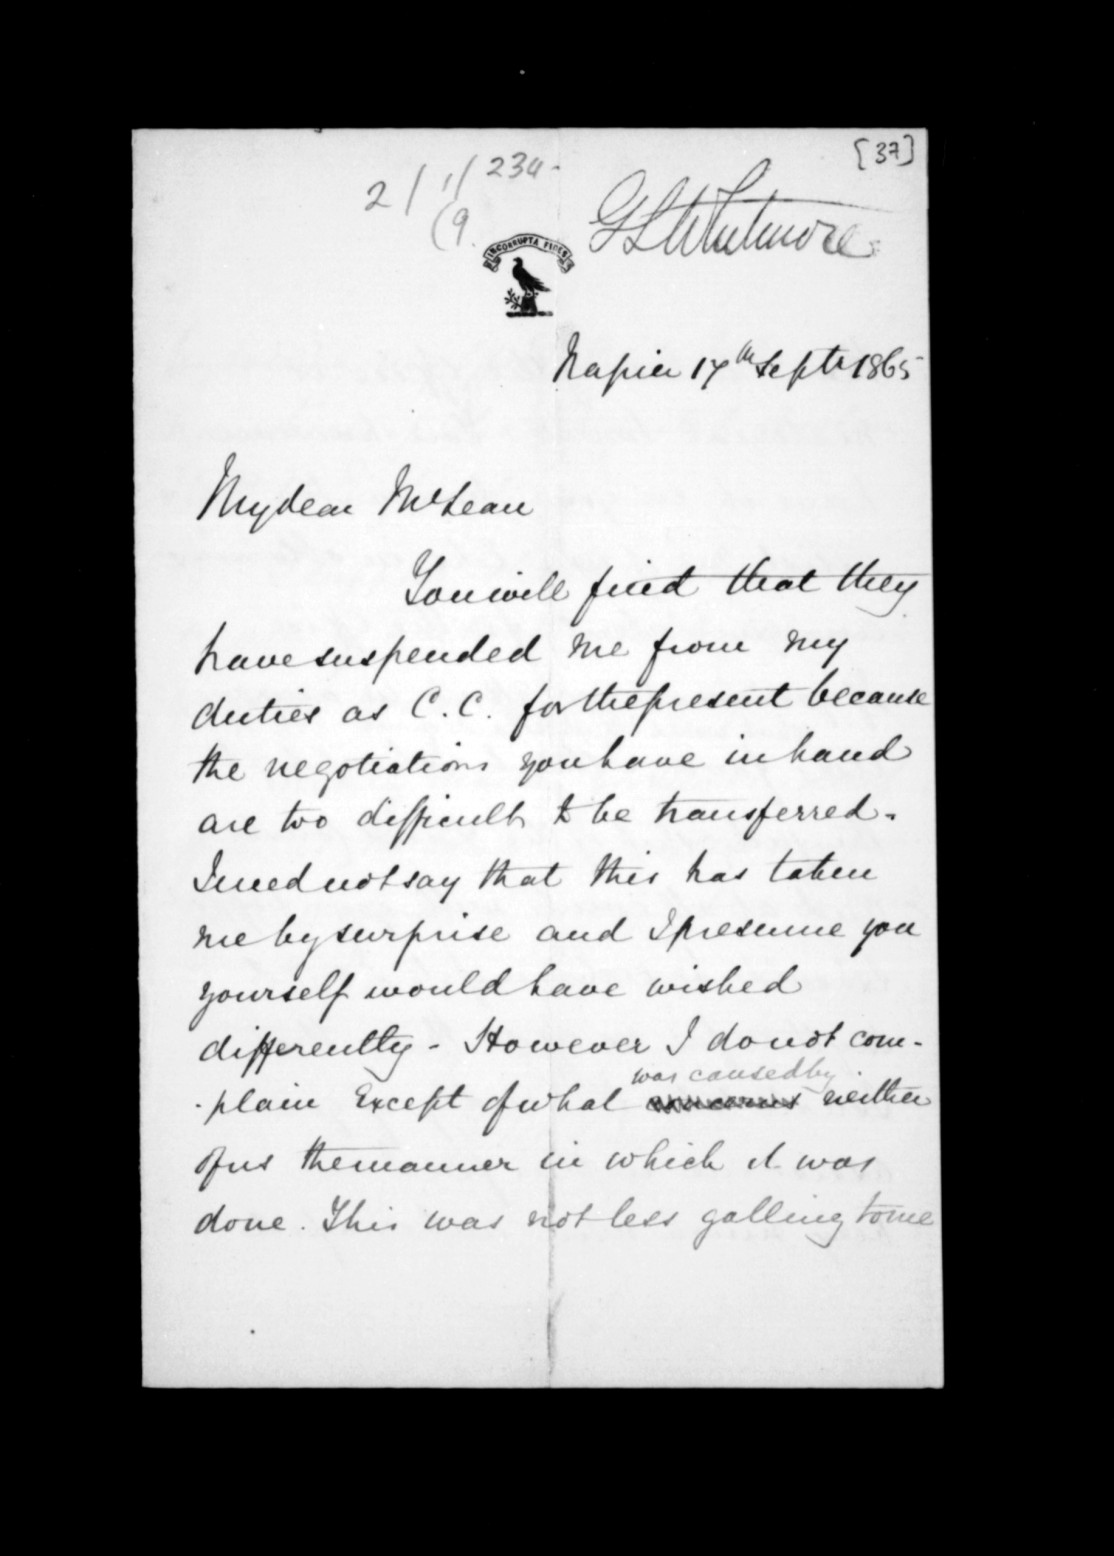 [37]
2/ 1/ 234-
(9.
GSWhitmore
INCORRUPTA FIDES
Napier 17th Septr 1865
My dear McLean
You will find that they
have suspended me from my
duties as C.C. for the present because
the negotiations you have in hand
are too difficult to be transferred.
I need not say that this has taken
me by surprise and I presume you
yourself would have wished
differently - However I do not com-
-plain Except of what
was caused by
neither
of us the manner in which it was
done. This was not less galling to me